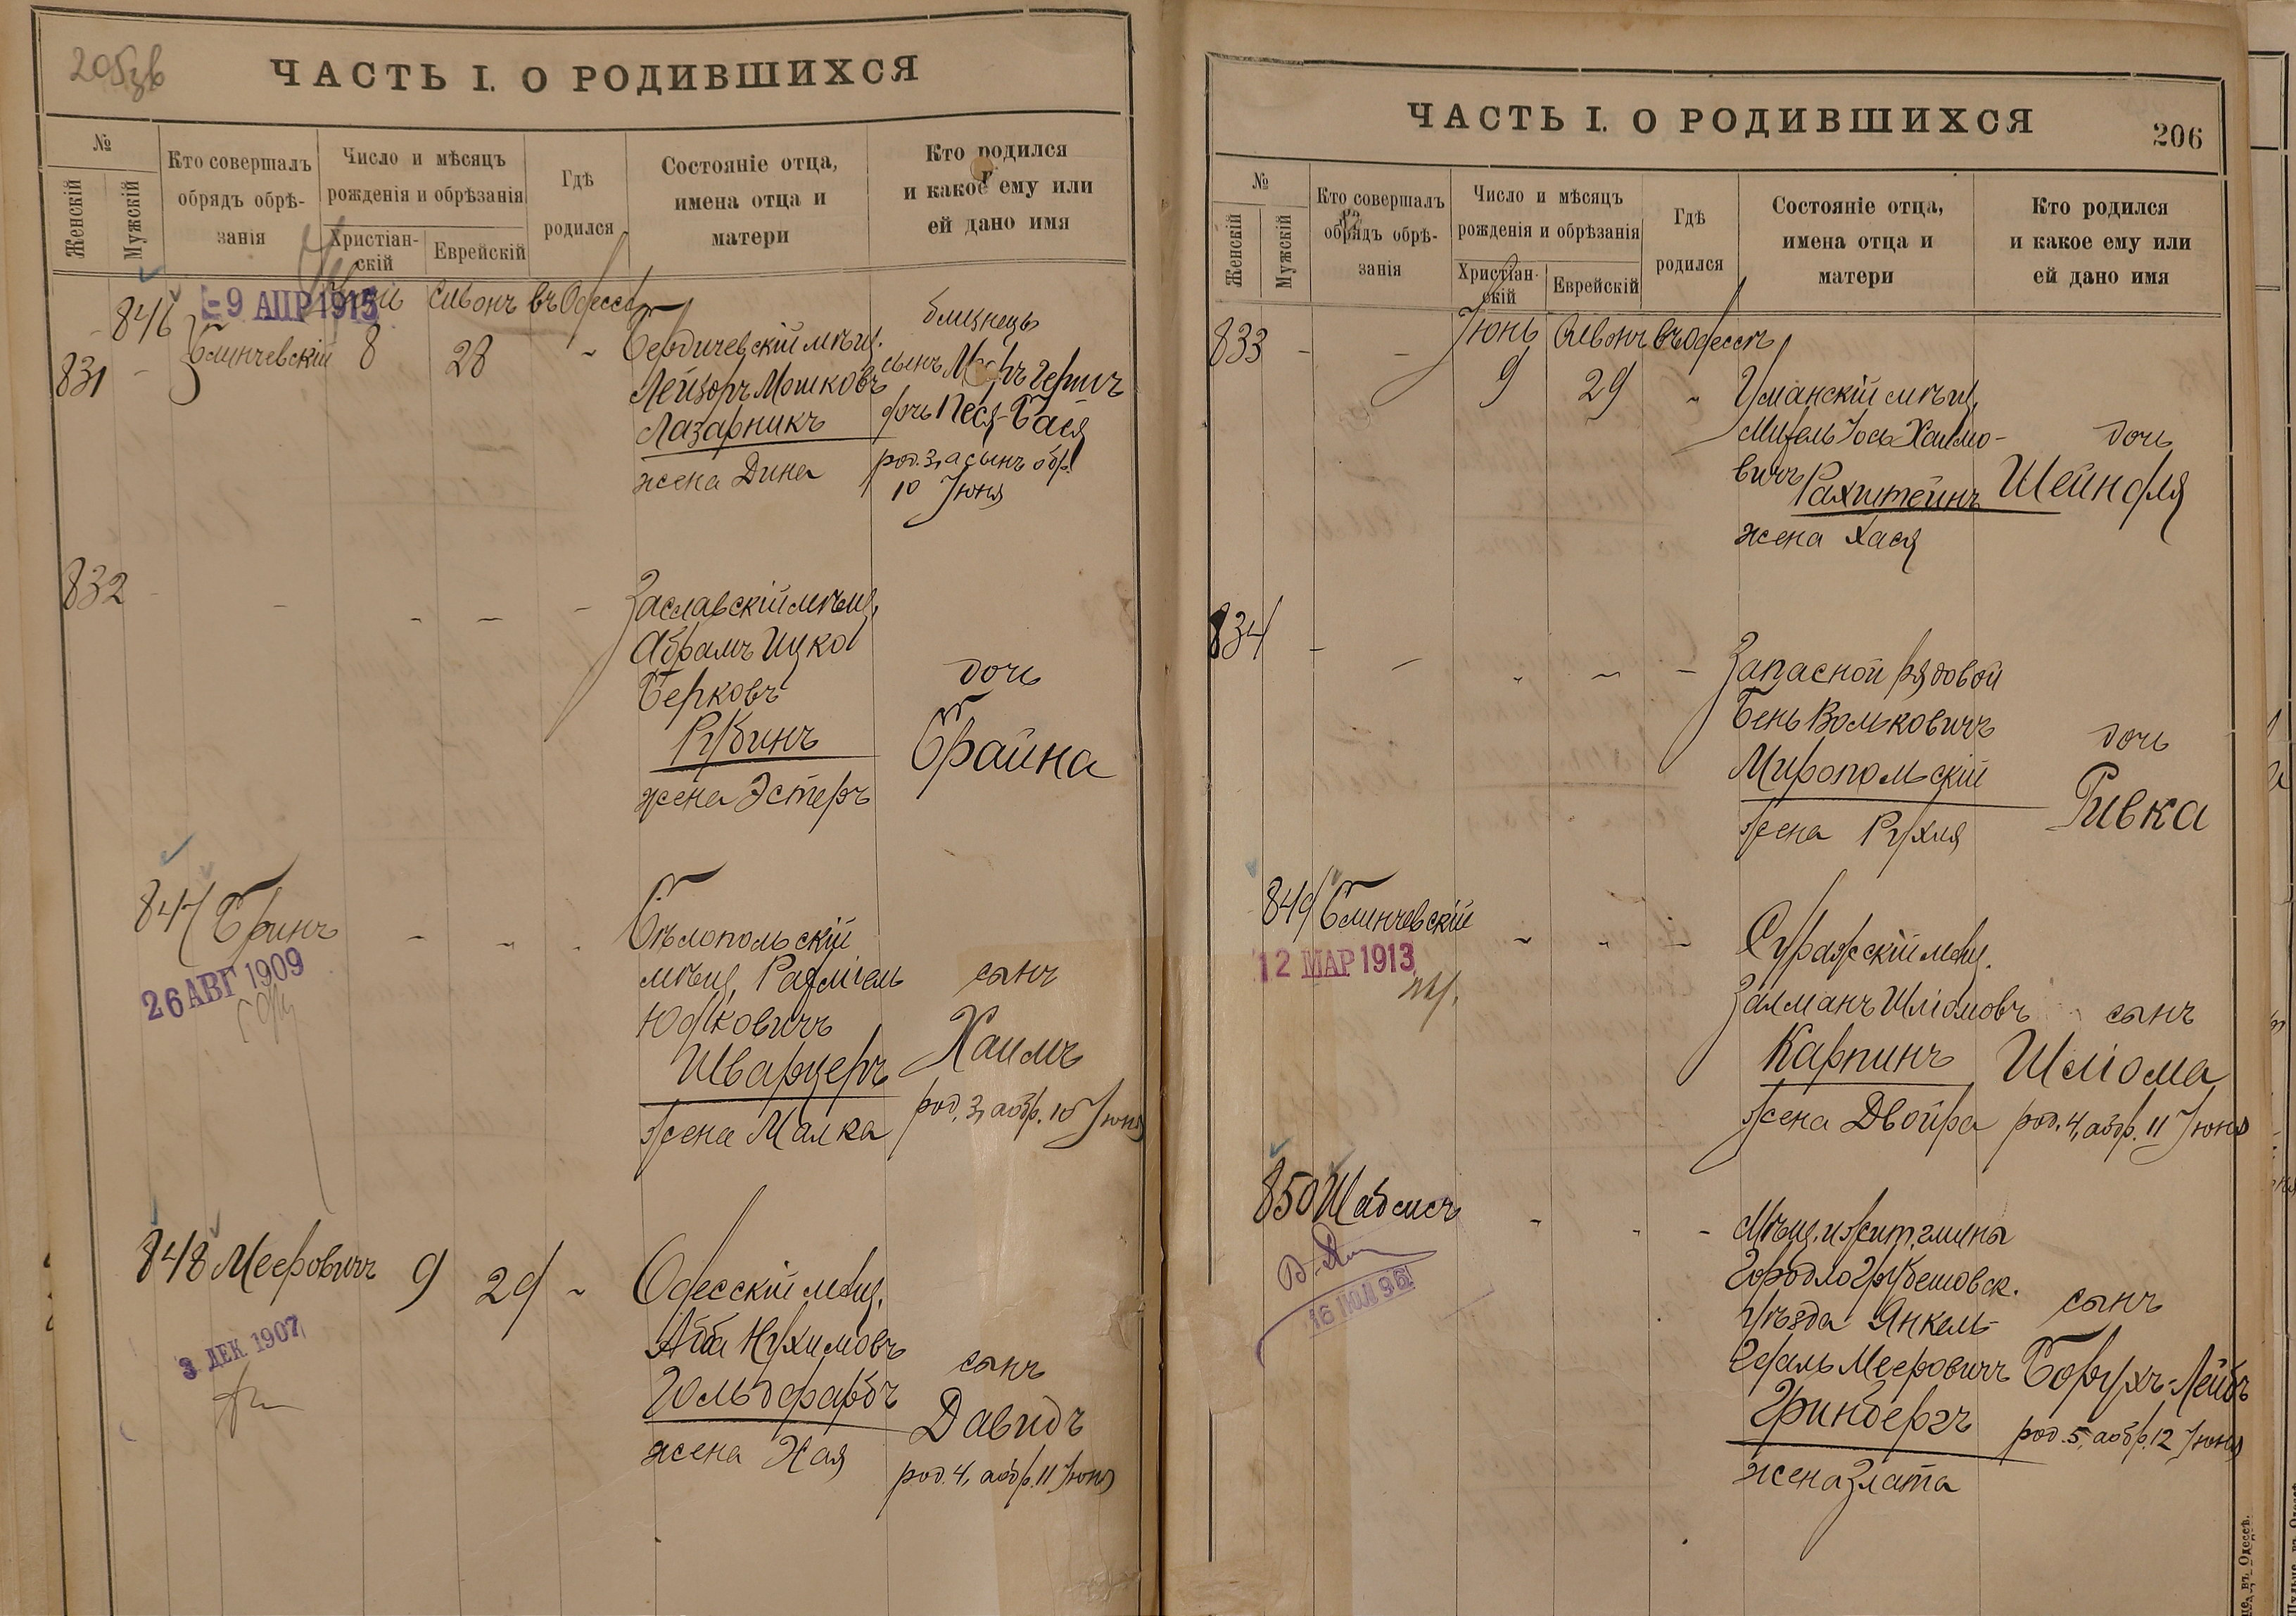 205зв
ЧАСТЬ I. О РОДИВШИХСЯ
№
Женскій
Мужскій
Кто совершалъ
обрядъ обрѣ-
занія
Число и мѣсяцъ
рожденія и обрѣзанія
Христіан-
скій
Еврейскій
Гдѣ
родился
Состояніе отца,
имена отца и
матери
Кто родился
и какое ему или
ей дано имя
846
831 -
-9 АПР 1915
Блинчевскій
8
Сивонъ
28
въ Одессѣ
Бердичевскій мѣщ.
Лейзоръ Мошковъ
Лазарникъ
жена Дина
близнецы
сынъ Гершъ
дочь Песя-Бася
род. 3, а сынъ обр.
10 Іюня
832 - - - - -
Заславскій мѣщ.
Абрамъ Ицко
Берковъ
Рубинъ
жена Эстеръ
дочь
Брайна
847 Бринъ - - -
26 АВГ 1909
Бѣлопольскій
мѣщ. Рахміель
Юдковичъ
Шварцеръ
жена Малка
сынъ
Хаимъ
род. 3, а обр. 10 Іюня
848 Мееровичъ 9 29 -
3 ДЕК 1907
Одесскій мѣщ.
Абба Нухимовъ
Гольдфарбъ
жена Хая
сынъ
Давидъ
род. 4, а обр. 11 Іюня
ЧАСТЬ I. О РОДИВШИХСЯ
206
№
Женскій
Мужскій
Кто совершалъ
обрядъ обрѣ-
занія
Число и мѣсяцъ
рожденія и обрѣзанія
Христіан-
скій
Еврейскій
Гдѣ
родился
Состояніе отца,
имена отца и
матери
Кто родился
и какое ему или
ей дано имя
833 - - Іюнь Сивонъ въ Одессѣ
9 29 -
Уманскій мѣщ.
Іось Хаимо-
вичъ Рахштейнъ
жена Хася
дочь
Шейндля
834 - - - - -
Запасной рядовой
Бень Волковичъ
Миропольскій
жена Рухля
дочь
Ривка
849 Блинчевскій - - -
12 МАР 1913
Суражскій мѣщ.
Залманъ Шліомовъ
Карпинъ
жена Двойра
сынъ
Шліома
род. 4, а обр. 11 Іюня
850 Шабсисъ - - -
16 ІЮЛ 96
Мѣщ. и жит. гмины
Городло Грубешовск.
уѣзда Янкель-
Мееровичъ
Гринбергъ
жена Злата
сынъ
Борухъ-Лейбъ
род. 5, а обр. 12 Іюня